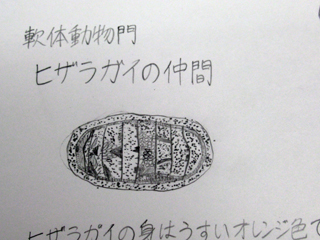 軟体動物門
ヒザラガイの仲間
ヒザラガイの身はうすいオレンジ色で